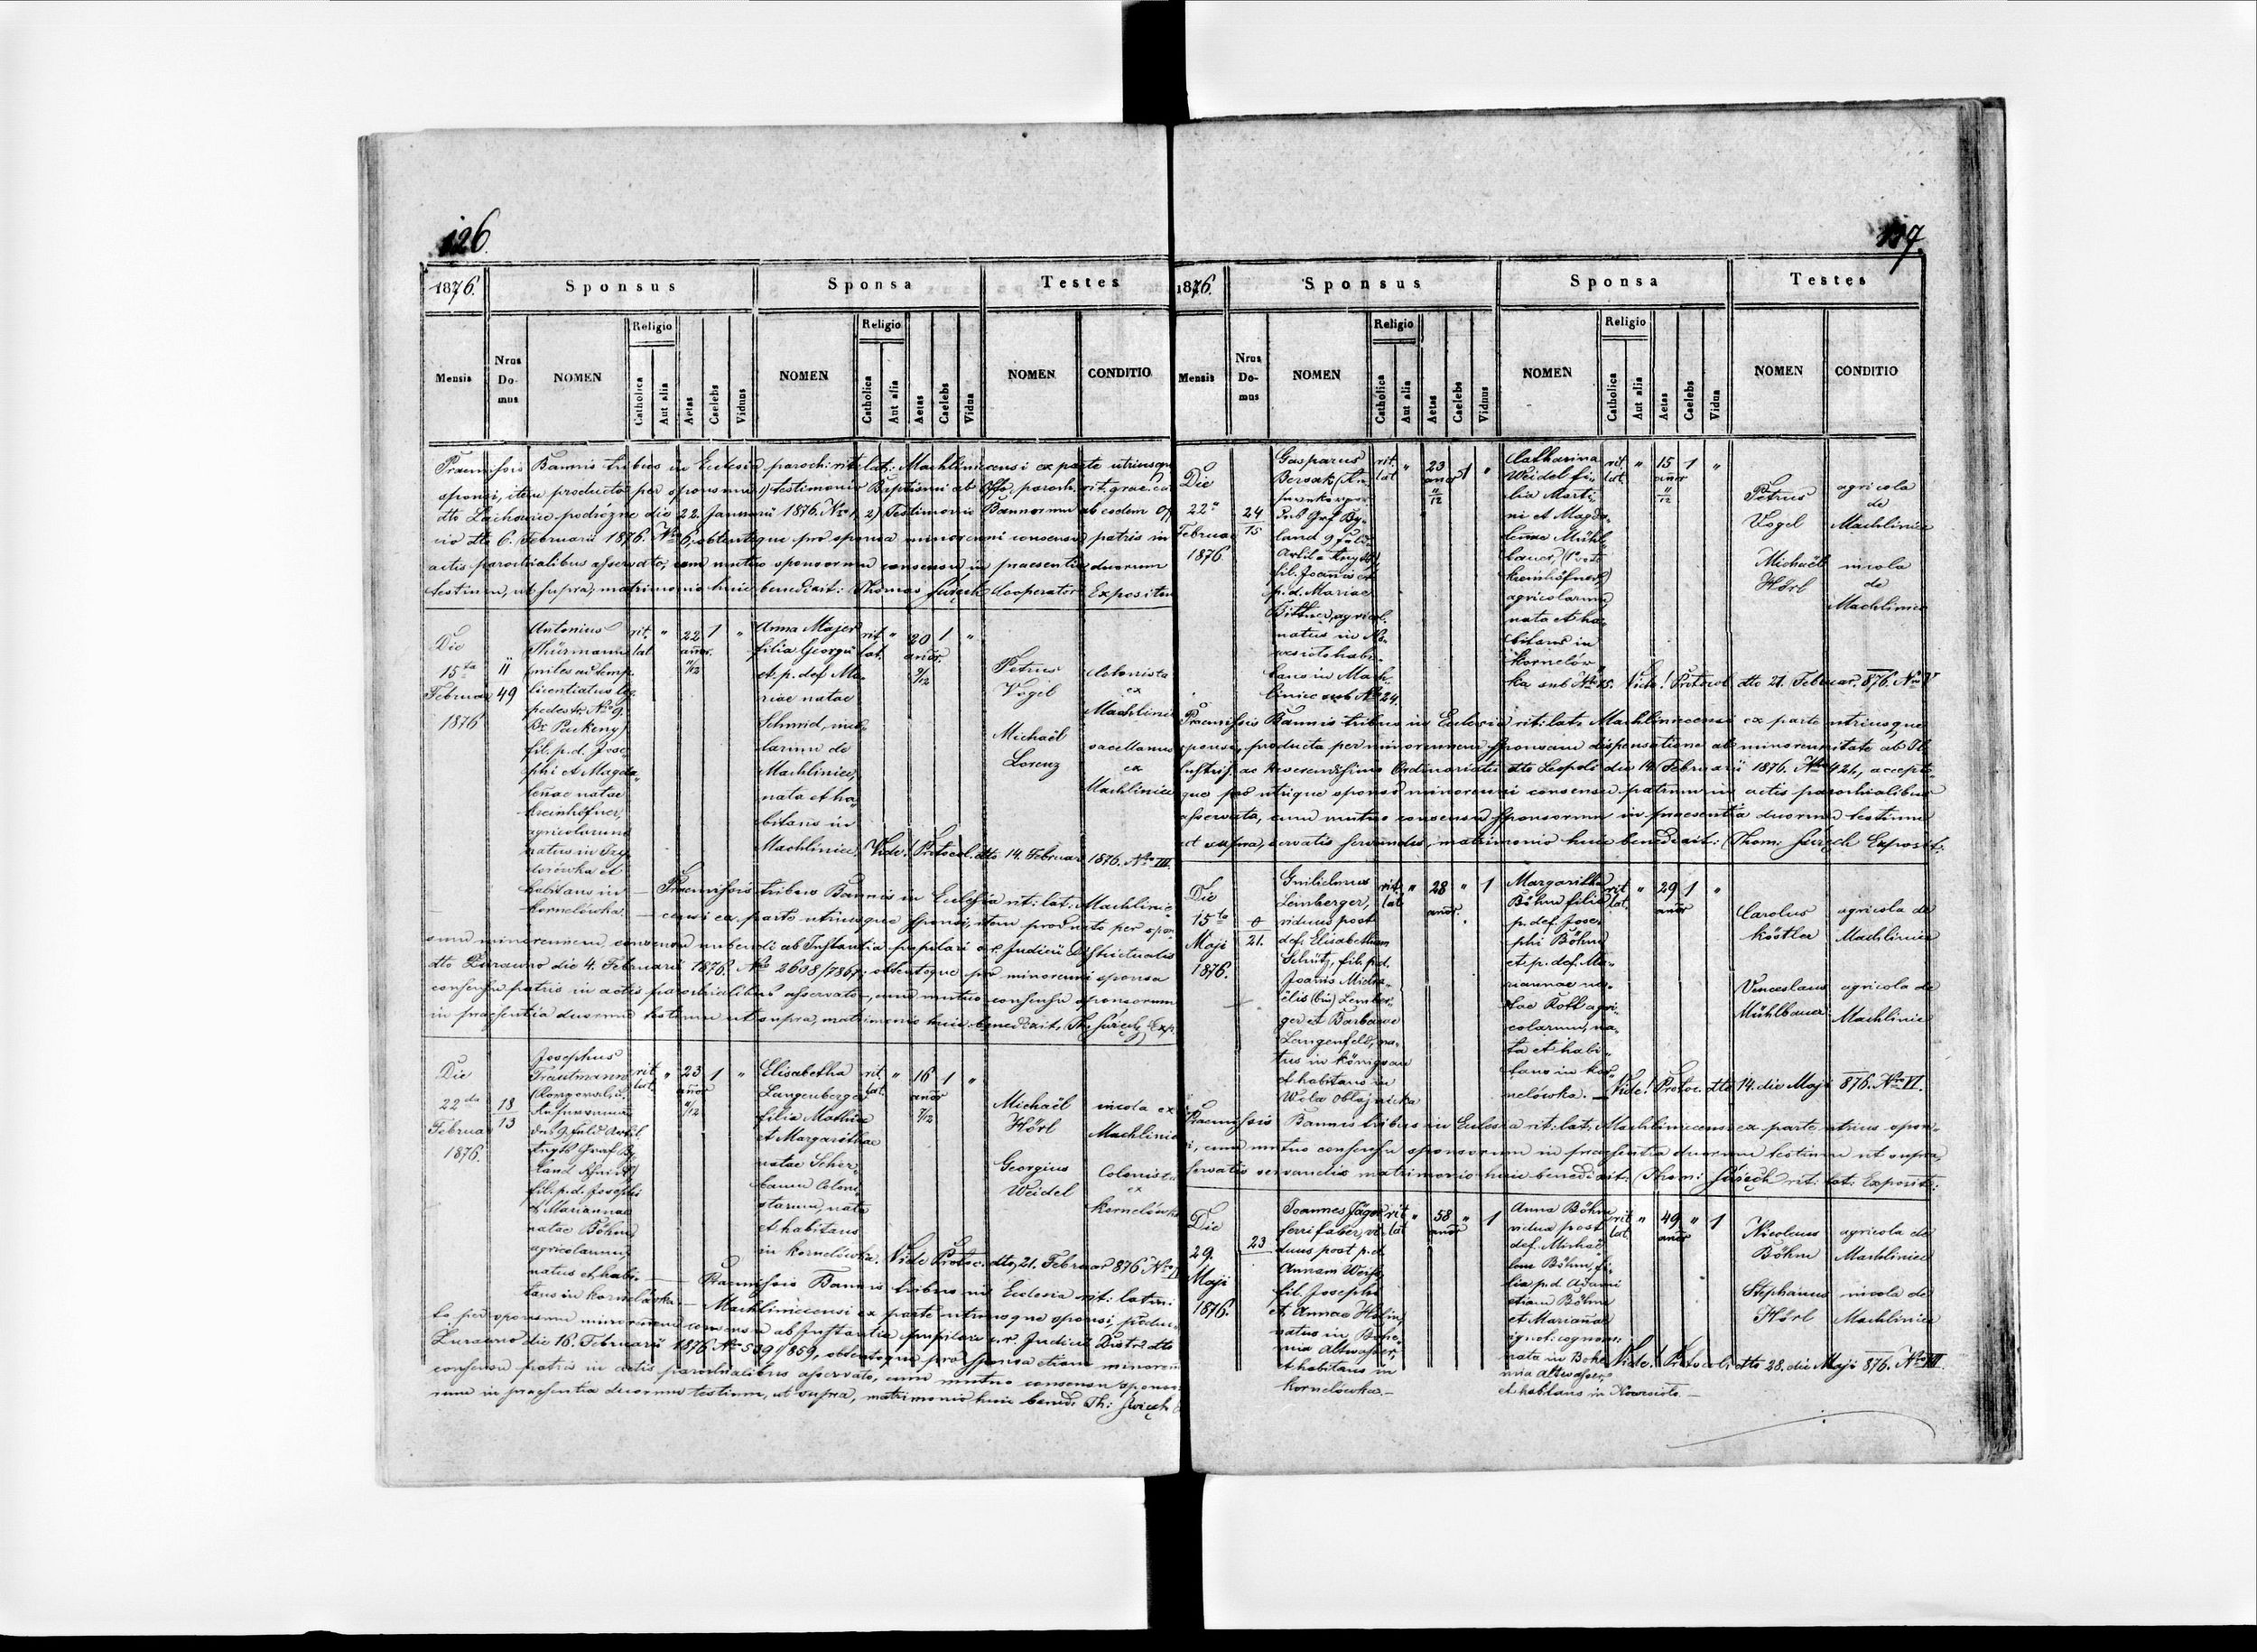 126.
1876. Sponsus Sponsa Testes
Religio Religio
Mensis Nrus Domus NOMEN Catholica Aut alia Aetas Caelebs Viduus NOMEN Catholica Aut alia Aetas Caelebs Vidua NOMEN CONDITIO
Praemissis Bannis tribus in Ecclesia paroch: rit: lat: Machliniecensi ex parte utriusque
sponsi, item producto per sponsum 1) testimonio Baptismi ab Offo. paroch. rit. grae. ca
dto Lachowice podróżne die 22. Januarii 1876. Nro 1, 2) Testimonio Bannorum ab eodem Offi
cio dto 6. Februarii 1876. Nro 6, obtentoque pro sponsa minorenni consensu patris in
actis parochialibus asservato, cum mutuo sponsorum consensu in praesentia duorum
testium, ut supra, matrimonio huic benedixit: Thomas Cooperator Expositus
Die
15ta
Februar
1876
11
49
Antonius
Thürmann
(miles ad temp.
licentiatus leg.
pedestr. Nro 9.
Br. Packeny)
fil. p. d. Jose-
phi et Magda-
lenae natae
Kreinhöfner,
agricolarum
natus in
et
habitans in
Kornelówka.
rit.
lat.
"
22
añor.
1
"
Anna Majer
filia Georgii
et p. def. Ma-
riae natae
Schmid,
de
Machliniec,
nata et ha-
bitans in
Machliniec.
rit.
lat.
"
20
añor.
1
"
Petrus
Vogel
Colonista
ex
Machliniec
Michaël
Lorenz
ex
Machliniec
Vide! Protocol. dto 14. Februar 1876. Nro III.
— Praemissis tribus Bannis in Ecclesia rit: lat: Machlinie-
— censi ex parte utriusque sponsi, item producto per spon-
sum minorennem consensu nubendi ab Instantia pupilari c.r. Judicii Districtualis
dto Żurawno die 4. Februarii 1876. Nro 2608/7867; obtentoque pro minorenni sponsa
consensu patris in actis parochialibus asservato, cum mutuo consensu sponsorum
in praesentia duorum testium ut supra, matrimonio huic benedixit, Th. Exp.
Die
22da
Februar
1876.
18
13
Josephus
Trautmann
fil. p. d. Josephi
et Mariannae
natae Böhm
agricolarum,
natus et habi-
tans in Kornelówka.
rit.
lat.
"
23
añor
1
"
Elisabetha
Langenberger
filia Mathiae
et Margarithae
natae Scher-
baum Coloni-
starum, nata
et habitans
in Kornelówka.
rit.
lat.
"
16
añor
7/12
1
"
Michaël
Hörl
incola ex
Machliniec
Georgius
Weidel
Colonista
ex
Kornelówka
Vide Protoc. dto, 21. Februar 876 Nro
— Praemissis Bannis tribus in Ecclesia rit: latini
— Machliniecensi ex parte utriusque sponsi, produc-
to per sponsum minorennem consensu ab Instantia pupilari c.r. Judicii Distr. dto
Żurawno die 16. Februarii 1876 Nro 599/859, obtentoque pro sponsa etiam minorenni
consensu patris in actis parochialibus asservato, cum mutuo consensu sponso-
rum in praesentia duorum testium, ut supra, matrimonio huic bened. Th:
127.
1876. Sponsus Sponsa Testes
Religio Religio
Mensis Nrus Domus NOMEN Catholica Aut alia Aetas Caelebs Viduus NOMEN Catholica Aut alia Aetas Caelebs Vidua NOMEN CONDITIO
Die
22a
Februar
1876
24
15
Gasparus
Bersak
fil. Joannis et
p. d. Mariae
Bittner, agricol.
natus in No-
wesioło habi-
tans in Mach-
liniec sub Nr 24.
rit.
lat
"
23
anor
11/12
1
"
Catharina
Weidel fi-
lia Marti-
ni et Magda-
lenae Mühl-
bauer,
Kreinhöfner,)
agricolarum,
nata et ha-
bitans in
Kornelów-
ka sub Nro 15.
rit.
lat.
"
15
anor
11/12
1
"
Petrus
Vogel
agricola
de
Machliniec
Michaël
Hörl
incola
de
Machliniec
Vide! Protocol dto 21. Februar. 876. Nro V
Praemissis Bannis tribus in Ecclesia rit: lat: Machliniecensi ex parte utriusque
sponsi, producta per minorennem sponsam dispensatione ab minorennitate ab Il-
lustriss. ac Reverendissimo Ordinariatu dto Leopoli die 14. Februarii 1876. Nro 424, accepto-
que pro utrique sponso minorenni consensu patrum in actis parochialibus
asservato, cum mutuo consensu sponsorum in praesentia duorum testium
ut supra, servatis servandis, matrimonio huic benedixit: Thom: Exposit:
Die
15ta
Maji
1876.
0
21.
Guilielmus
Leimberger,
viduus post
def. Elisabetham
Schütz, fil. p. d.
Joanis Micha-
ëlis (bis) Lember-
ger et Barbarae
Langenfeld, na-
tus in Königsau
et habitans in
Wola Obłaznicka
rit.
lat
"
28
añor.
"
1
Margaritha
Böhm filia
p. def. Jose-
phi Böhm
et p. def. Ma-
riannae na-
tae Kott agri-
colarum, na-
ta et habi-
tans in Kor-
nelówka.
rit.
lat.
"
29
anor
1
"
Carolus
Köstler
agricola de
Machliniec
Venceslaus
Mühlbauer
agricola de
Machliniec
Vide! Protoc. dto 14. die Maji 876. Nro VI.
Praemissis Bannis tribus in Ecclesia rit: lat: Machliniecensi ex parte utrius spon-
si, cum mutuo consensu sponsorum in praesentia duorum testium ut supra,
servatis servandis matrimonio huic benedixit. Thom: rit: lat: Exposit:
Die
29.
Maji
1876.
23
Joannes Jäger
ferri faber, vi-
duus post p. d.
Annam Weiss,
fil. Josephi
et Annae
natus in Bohe-
mia Altwasser,
et habitans in
Kornelówka.—
rit
lat
"
58
anor
"
1
Anna Böhm
vidua post
def. Michaë-
lem Böhm, fi-
lia p.d. Adami
etiam Böhm
et Mariañae
ignot. cognom:
nata in Bohe-
mia Altwasser
et habitans in Nowesioło.—
rit
lat.
"
49
añor
"
1
Nicolaus
Böhm
agricola de
Machliniec
Stephanus
Hörl
incola de
Machliniec
Vide! Protocol. dto 28. die Maji 876. Nro VII.